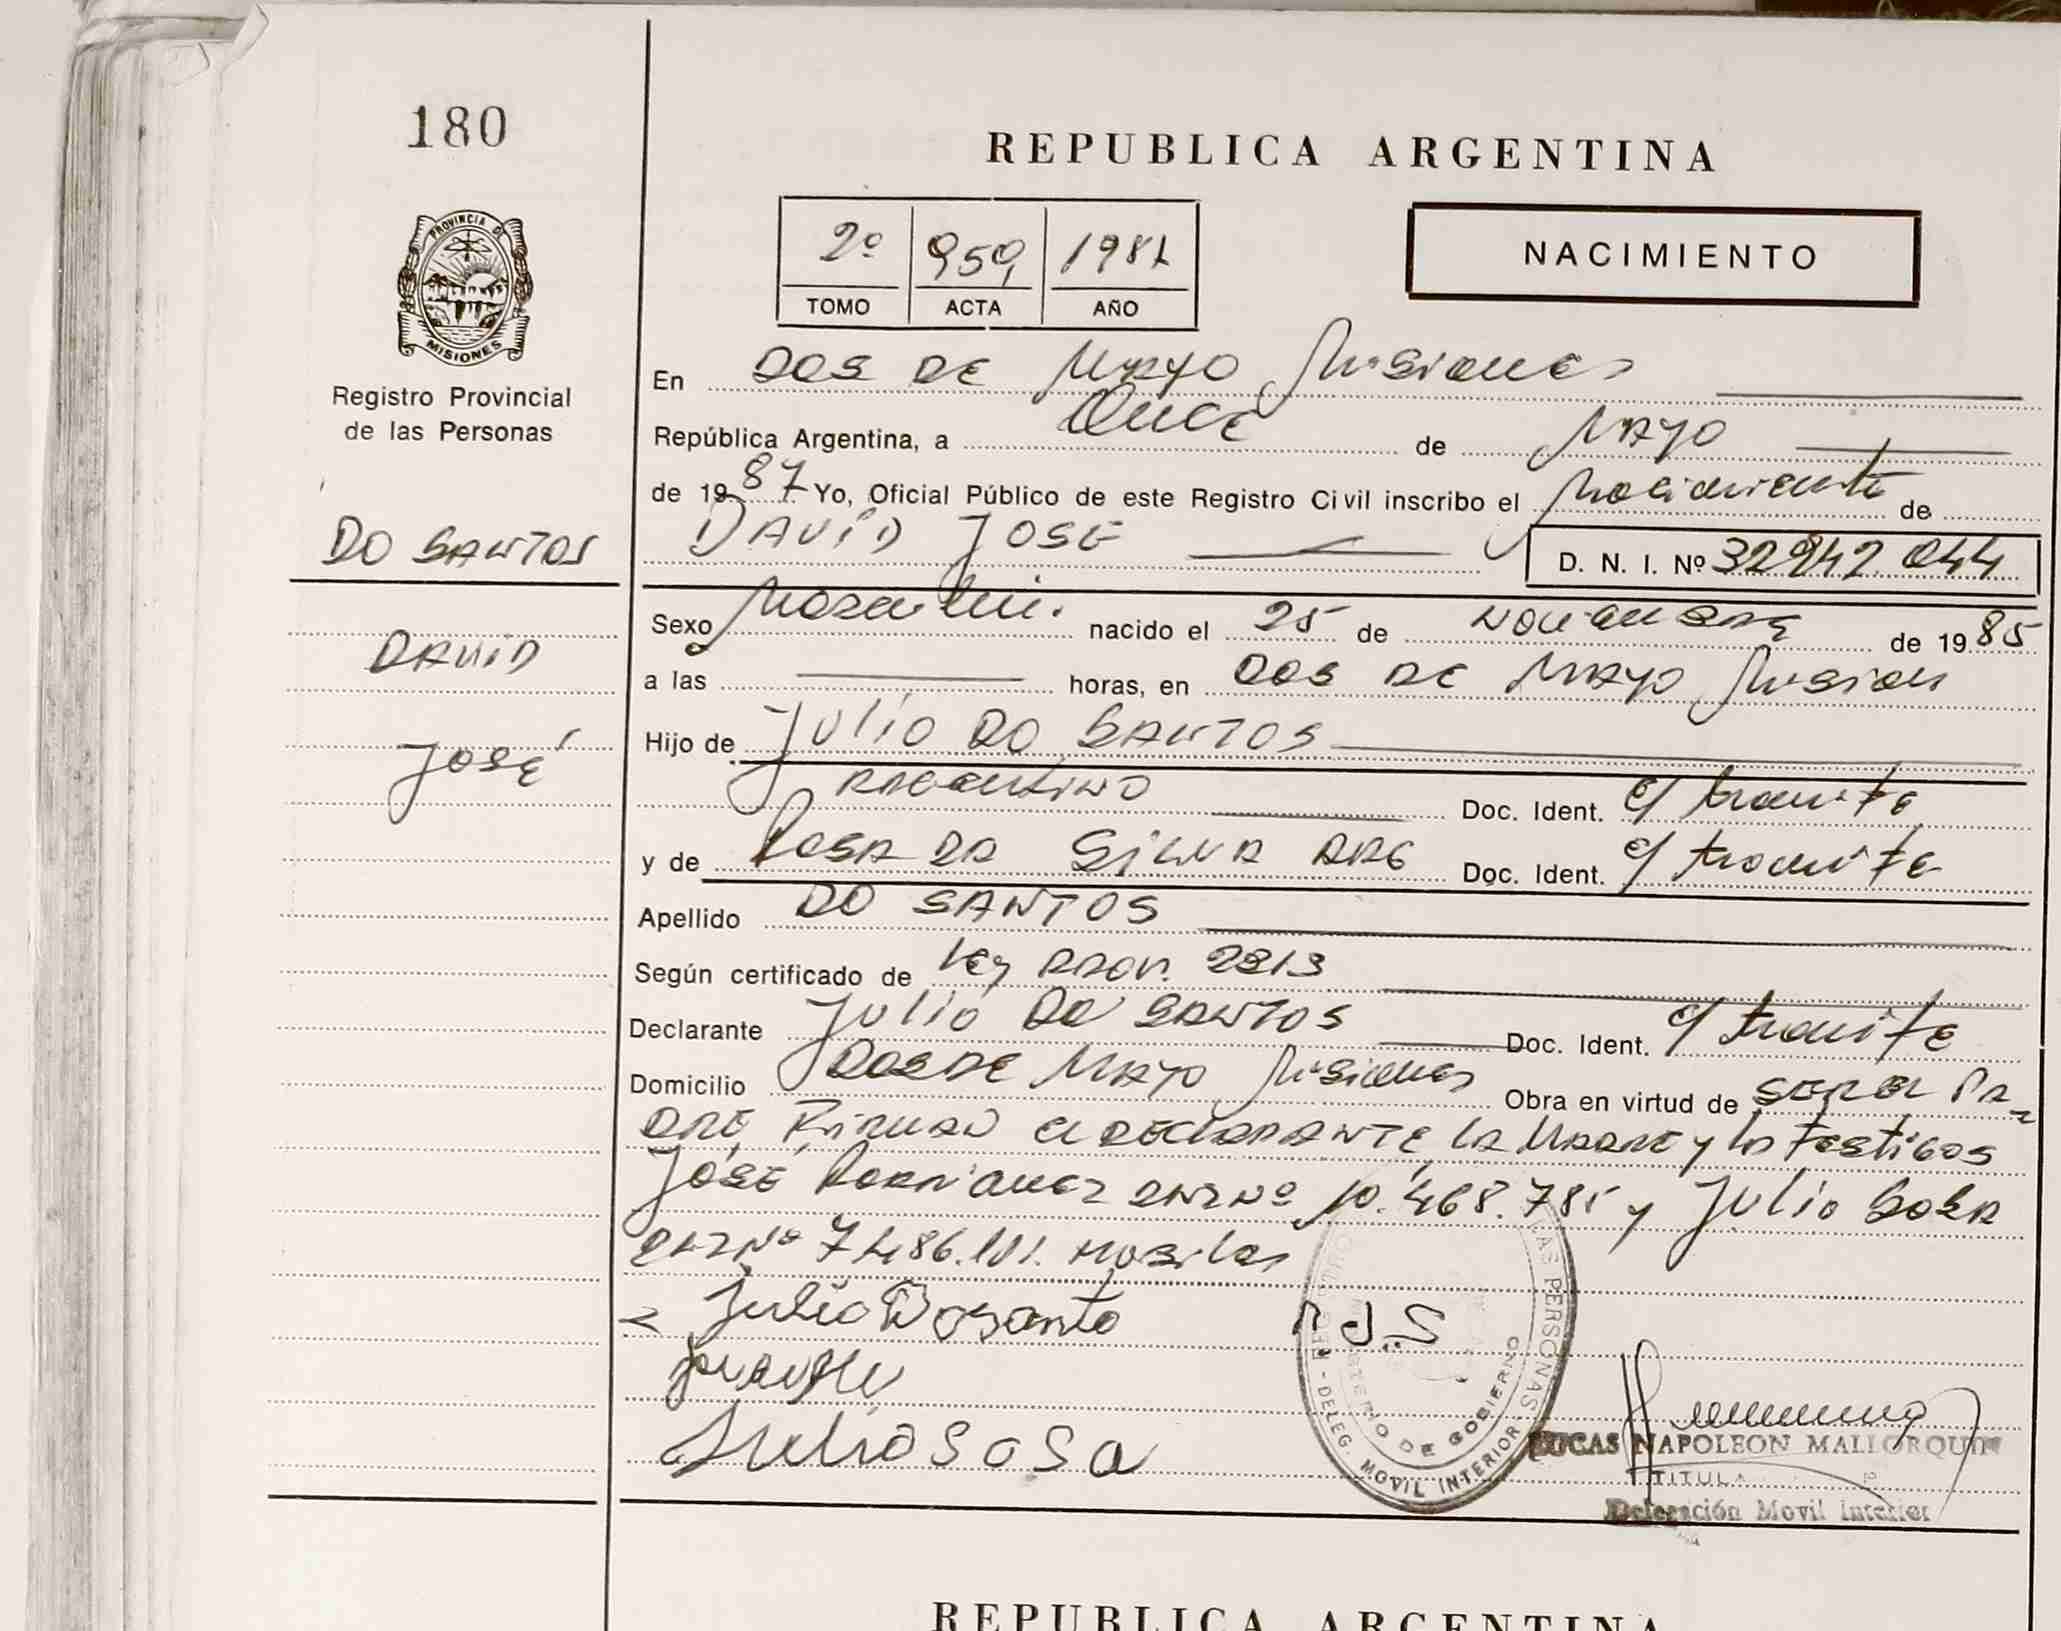 180
REPUBLICA ARGENTINA
PROVINCIA DE
MISIONES
Registro Provincial
de las Personas
2º 959 1987
TOMO ACTA AÑO
NACIMIENTO
DO SANTOS
DAVID
José
En DOS DE MAYO Misiones
República Argentina, a Once de MAYO
de 1987 Yo, Oficial Público de este Registro Civil inscribo el Nacimiento de
DAVID JOSE D. N. I. Nº 32942.044
Sexo Masculi. nacido el 25 de NOVIEMBRE de 1985
a las horas, en DOS DE MAYO Mision
Hijo de Julio DO SANTOS
ARGENTINO Doc. Ident. e/ tramite
y de ROSA DA SILVA ARG Doc. Ident. e/ tramite
Apellido DO SANTOS
Según certificado de Ley PROV. 2313
Declarante Julio DO SANTOS Doc. Ident. e/ tramite
Domicilio DOS DE MAYO Misiones Obra en virtud de SER EL PA-
DRE FIRMAN el DECLARANTE LA MADRE y los TESTIGOS
JOSE DNI Nº 10.468.785 y Julio SOSA
DNI Nº 7.486.101.
Julio Dosanto
R.J.S
Julio Sosa
DELEG. MOVIL INTERIOR
DE GOBIERNO
LAS PERSONAS
LUCAS NAPOLEON MALLORQUIN
TITULA
Delegación Movil Interior
REPUBLICA ARGENTINA